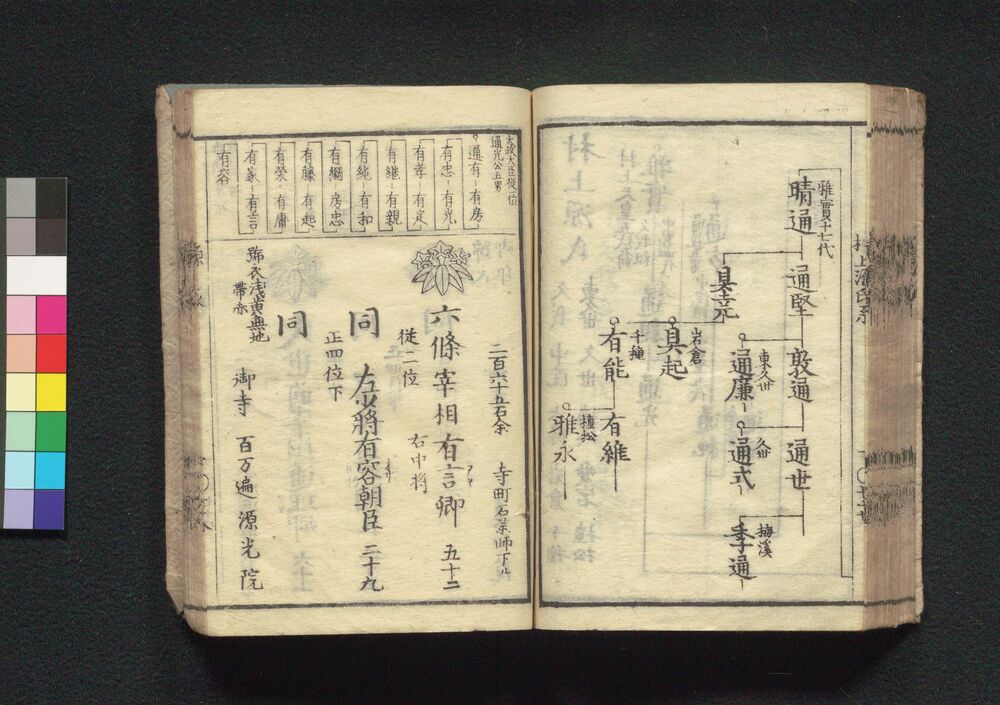 雅實十七代
晴通
通堅
敦通
通世
具堯
東久世
通廉
久世
通式
梅溪
季通
岩倉
具起
千種
有能
有維
植松
雅永
太政大臣従一位
通光公五男
通有 有房
有忠 有光
有孝 有定
有継 有親
有純 有和
有綱 房忠
有藤 有起
有榮 有庸
有家 有言
有容
二百六十五石余 寺町石薬師下ル
六條宰相有言卿 五十二
従二位
右中将
同 左少将有容朝臣 二十九
正四位下
同
號衣浅黄無地
帯赤
御寺 百万遍 源光院